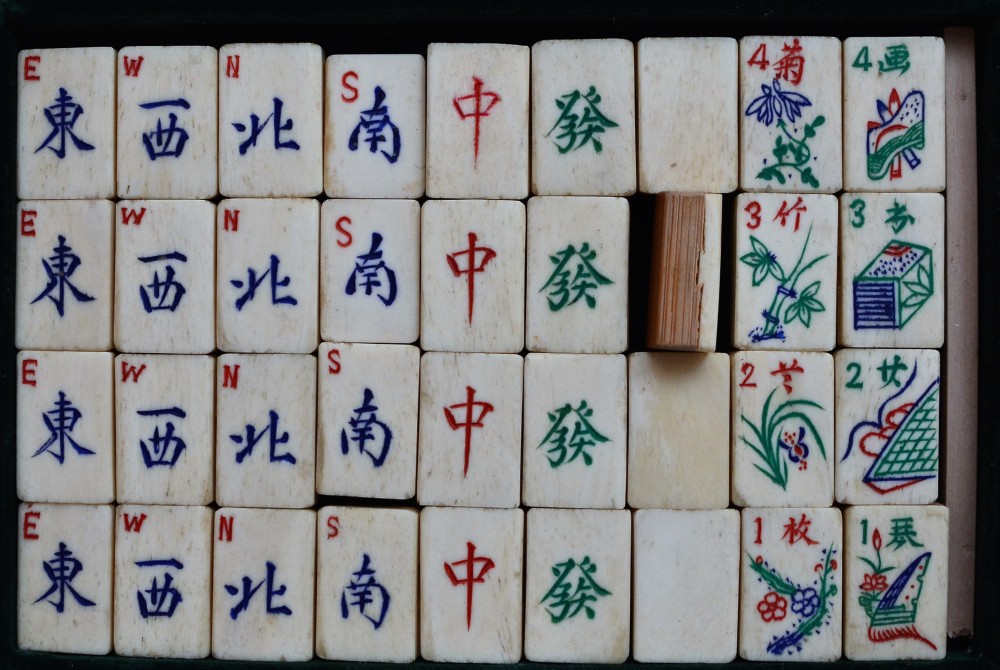 E W N S 4 菊 4 画
東 西 北 南 中 發
E W N S 3 竹 3 书
東 西 北 南 中 發
E W N S 2 2
東 西 北 南 中 發
E W N S 1 枚 1
東 西 北 南 中 發